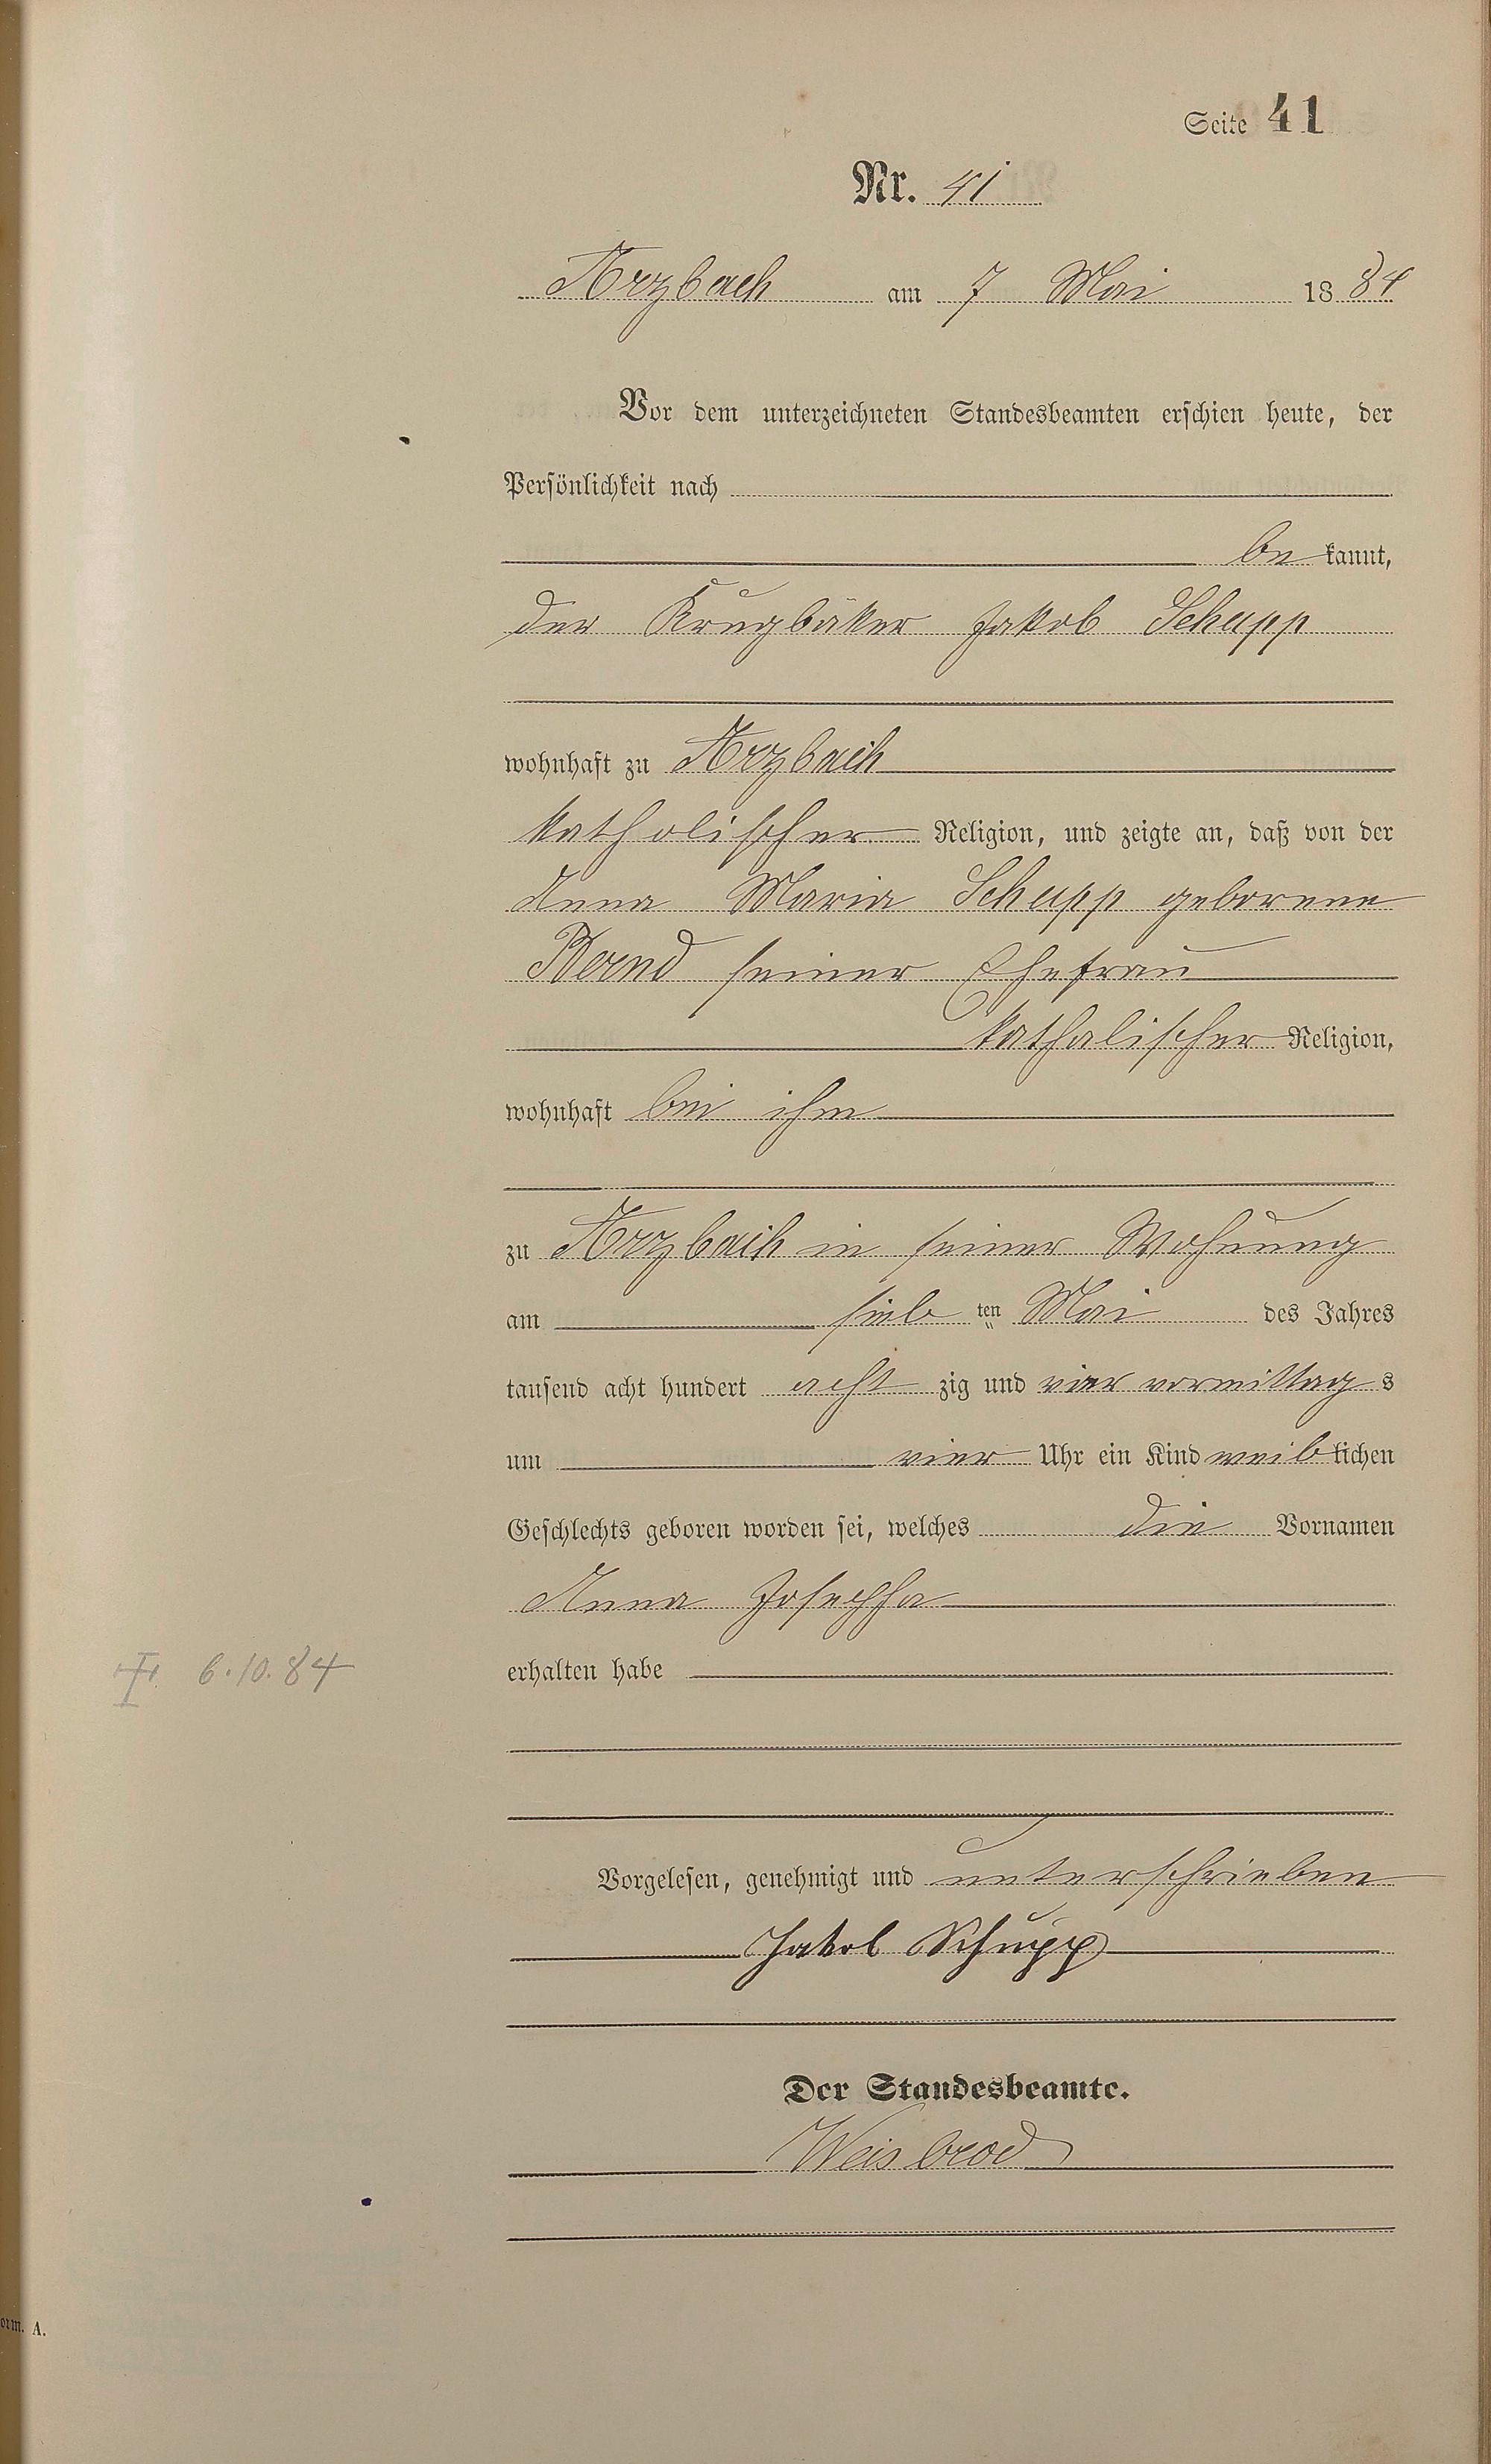 Seite 41
Nr. 41
Arzbach am 7 Mai 1884
Vor dem unterzeichneten Standesbeamten erschien heute, der
Persönlichkeit nach
bekannt,
der Krugbäker Jakob Schupp
wohnhaft zu Arzbach
katholischer Religion, und zeigte an, daß von der
Anna Maria Schupp geborene
Bernd seiner Ehefrau
katholischer Religion,
wohnhaft bei ihm
zu Arzbach in seiner Wohnung
am sieb ten Mai des Jahres
tausend acht hundert acht zig und vier vormittag s
um vier Uhr ein Kind weiblichen
Geschlechts geboren worden sei, welches die Vornamen
Anna Josepha
† 6.10.84 erhalten habe
Vorgelesen, genehmigt und unterschrieben
Jakob Schupp
Der Standesbeamte.
Weisbrod
orm. A.